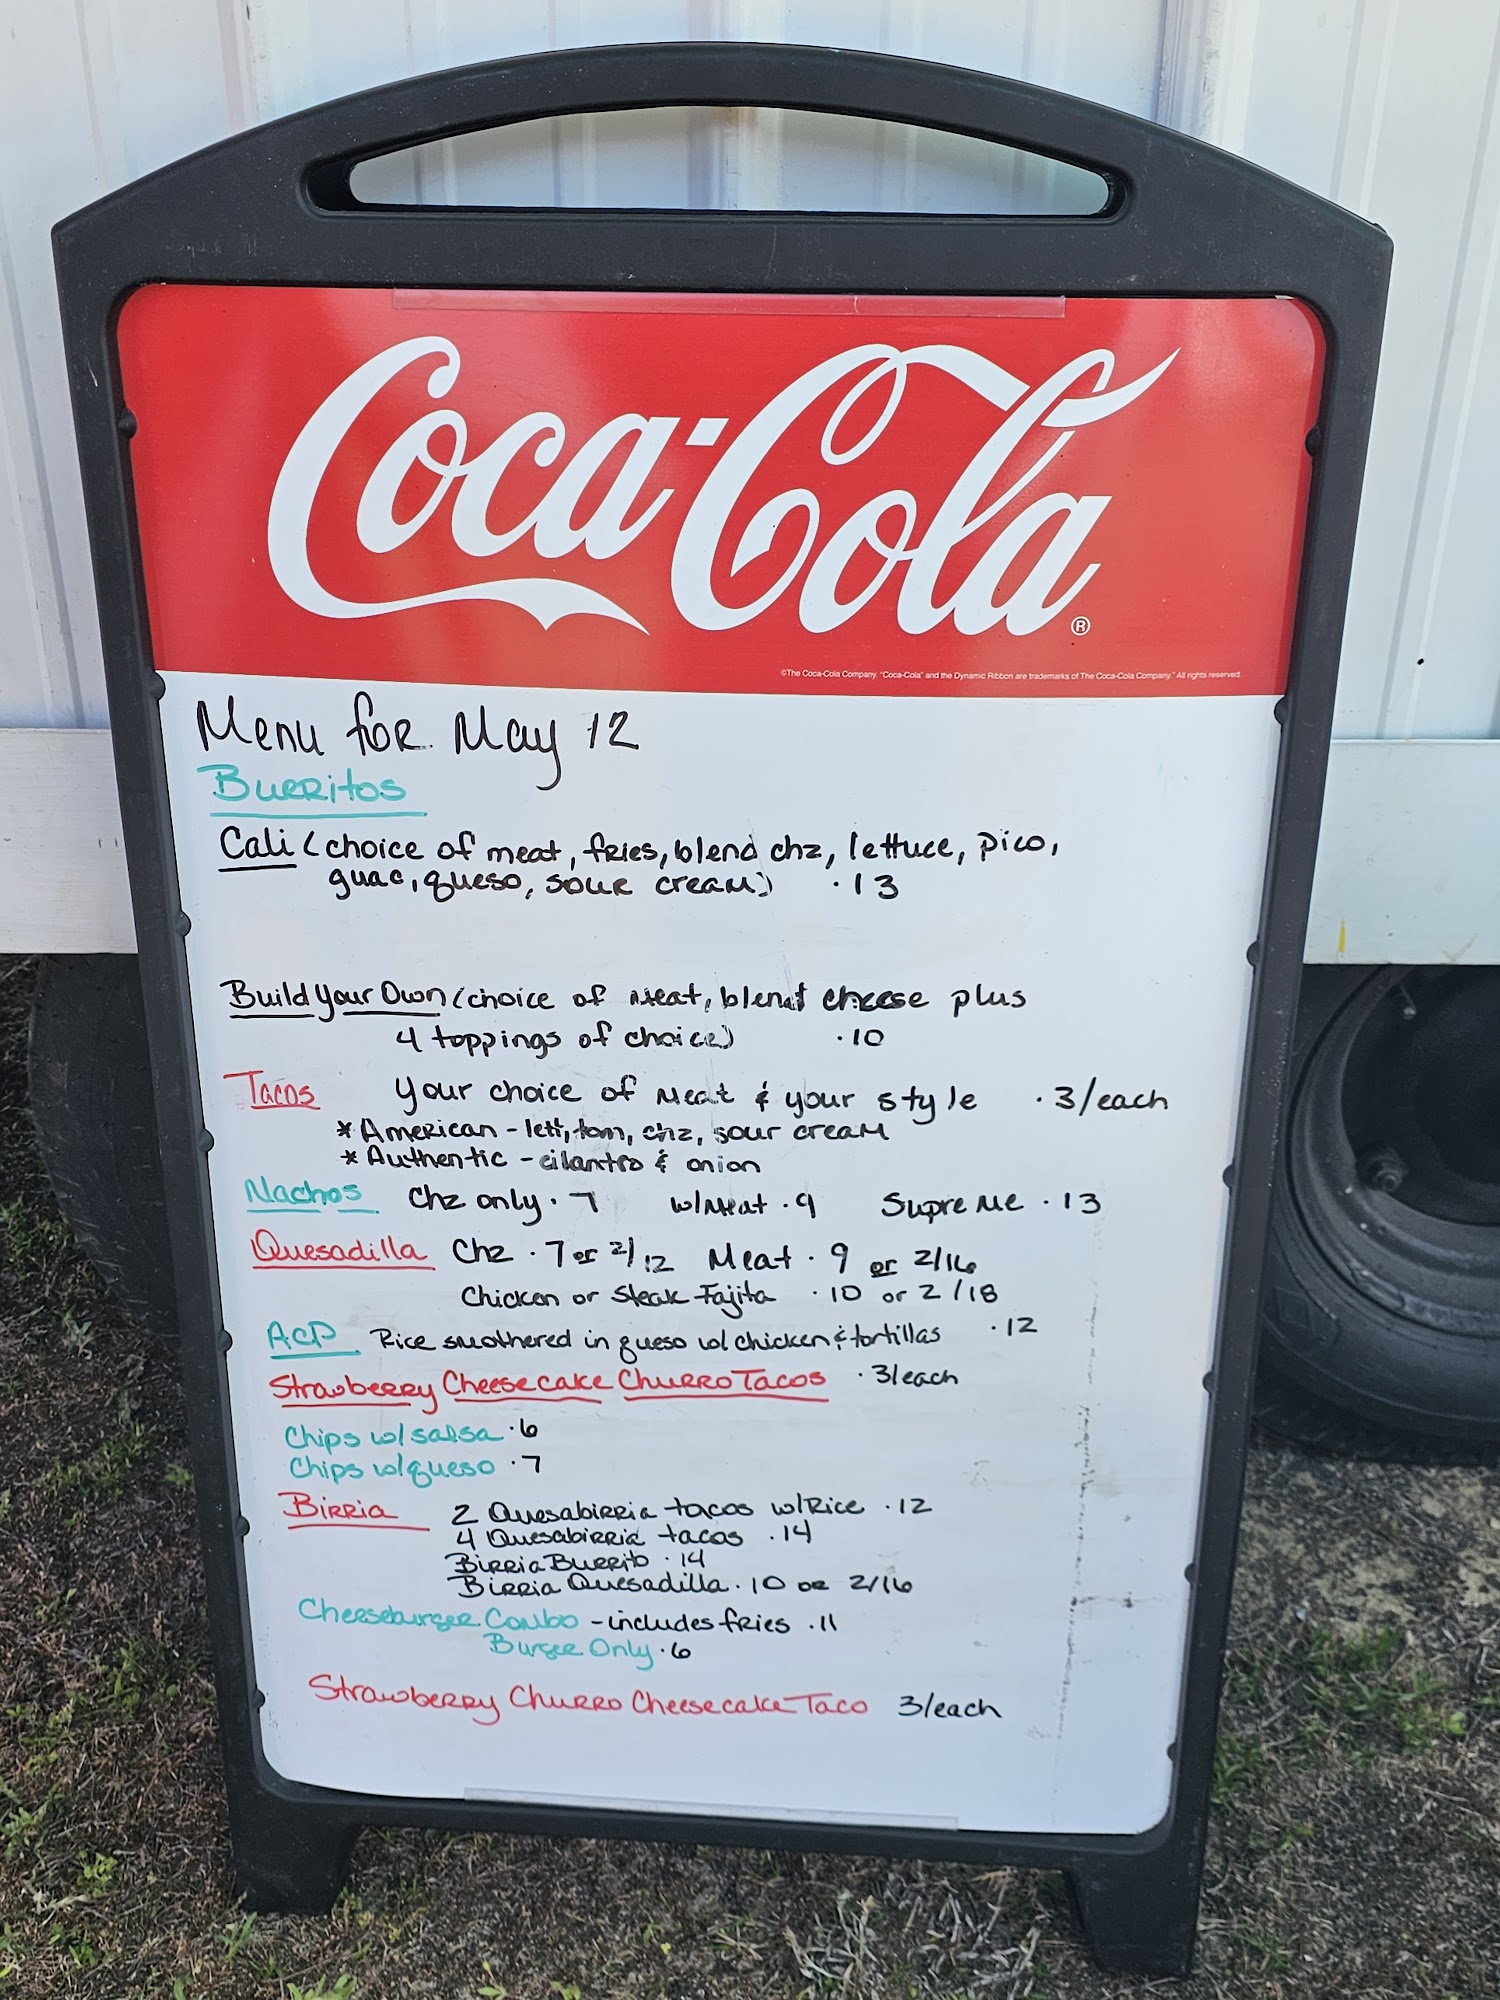 Coca-Cola®
©The Coca-Cola Company. "Coca-Cola" and the Dynamic Ribbon are trademarks of The Coca-Cola Company. All rights reserved.
Menu for May 12
Burritos
Cali (choice of meat, fries, blend chz, lettuce, pico,
guac, queso, sour cream) .13
Build Your Own (choice of meat, blend cheese plus
4 toppings of choice) .10
Tacos Your choice of meat & your style .3/each
*American - lett, tom, chz, sour cream
*Authentic - cilantro & onion
Nachos Chz only .7 w/meat .9 Supreme .13
Quesadilla Chz .7 or 2/12 Meat .9 or 2/16
Chicken or Steak Fajita .10 or 2/18
ACP Rice smothered in queso w/ chicken & tortillas .12
Strawberry Cheesecake Churro Tacos .3/each
Chips w/salsa .6
Chips w/queso .7
Birria 2 Quesabirria tacos w/Rice .12
4 Quesabirria tacos .14
Birria Burrito .14
Birria Quesadilla .10 or 2/16
Cheeseburger Combo - includes fries .11
Burger Only .6
Strawberry Churro Cheesecake Taco 3/each